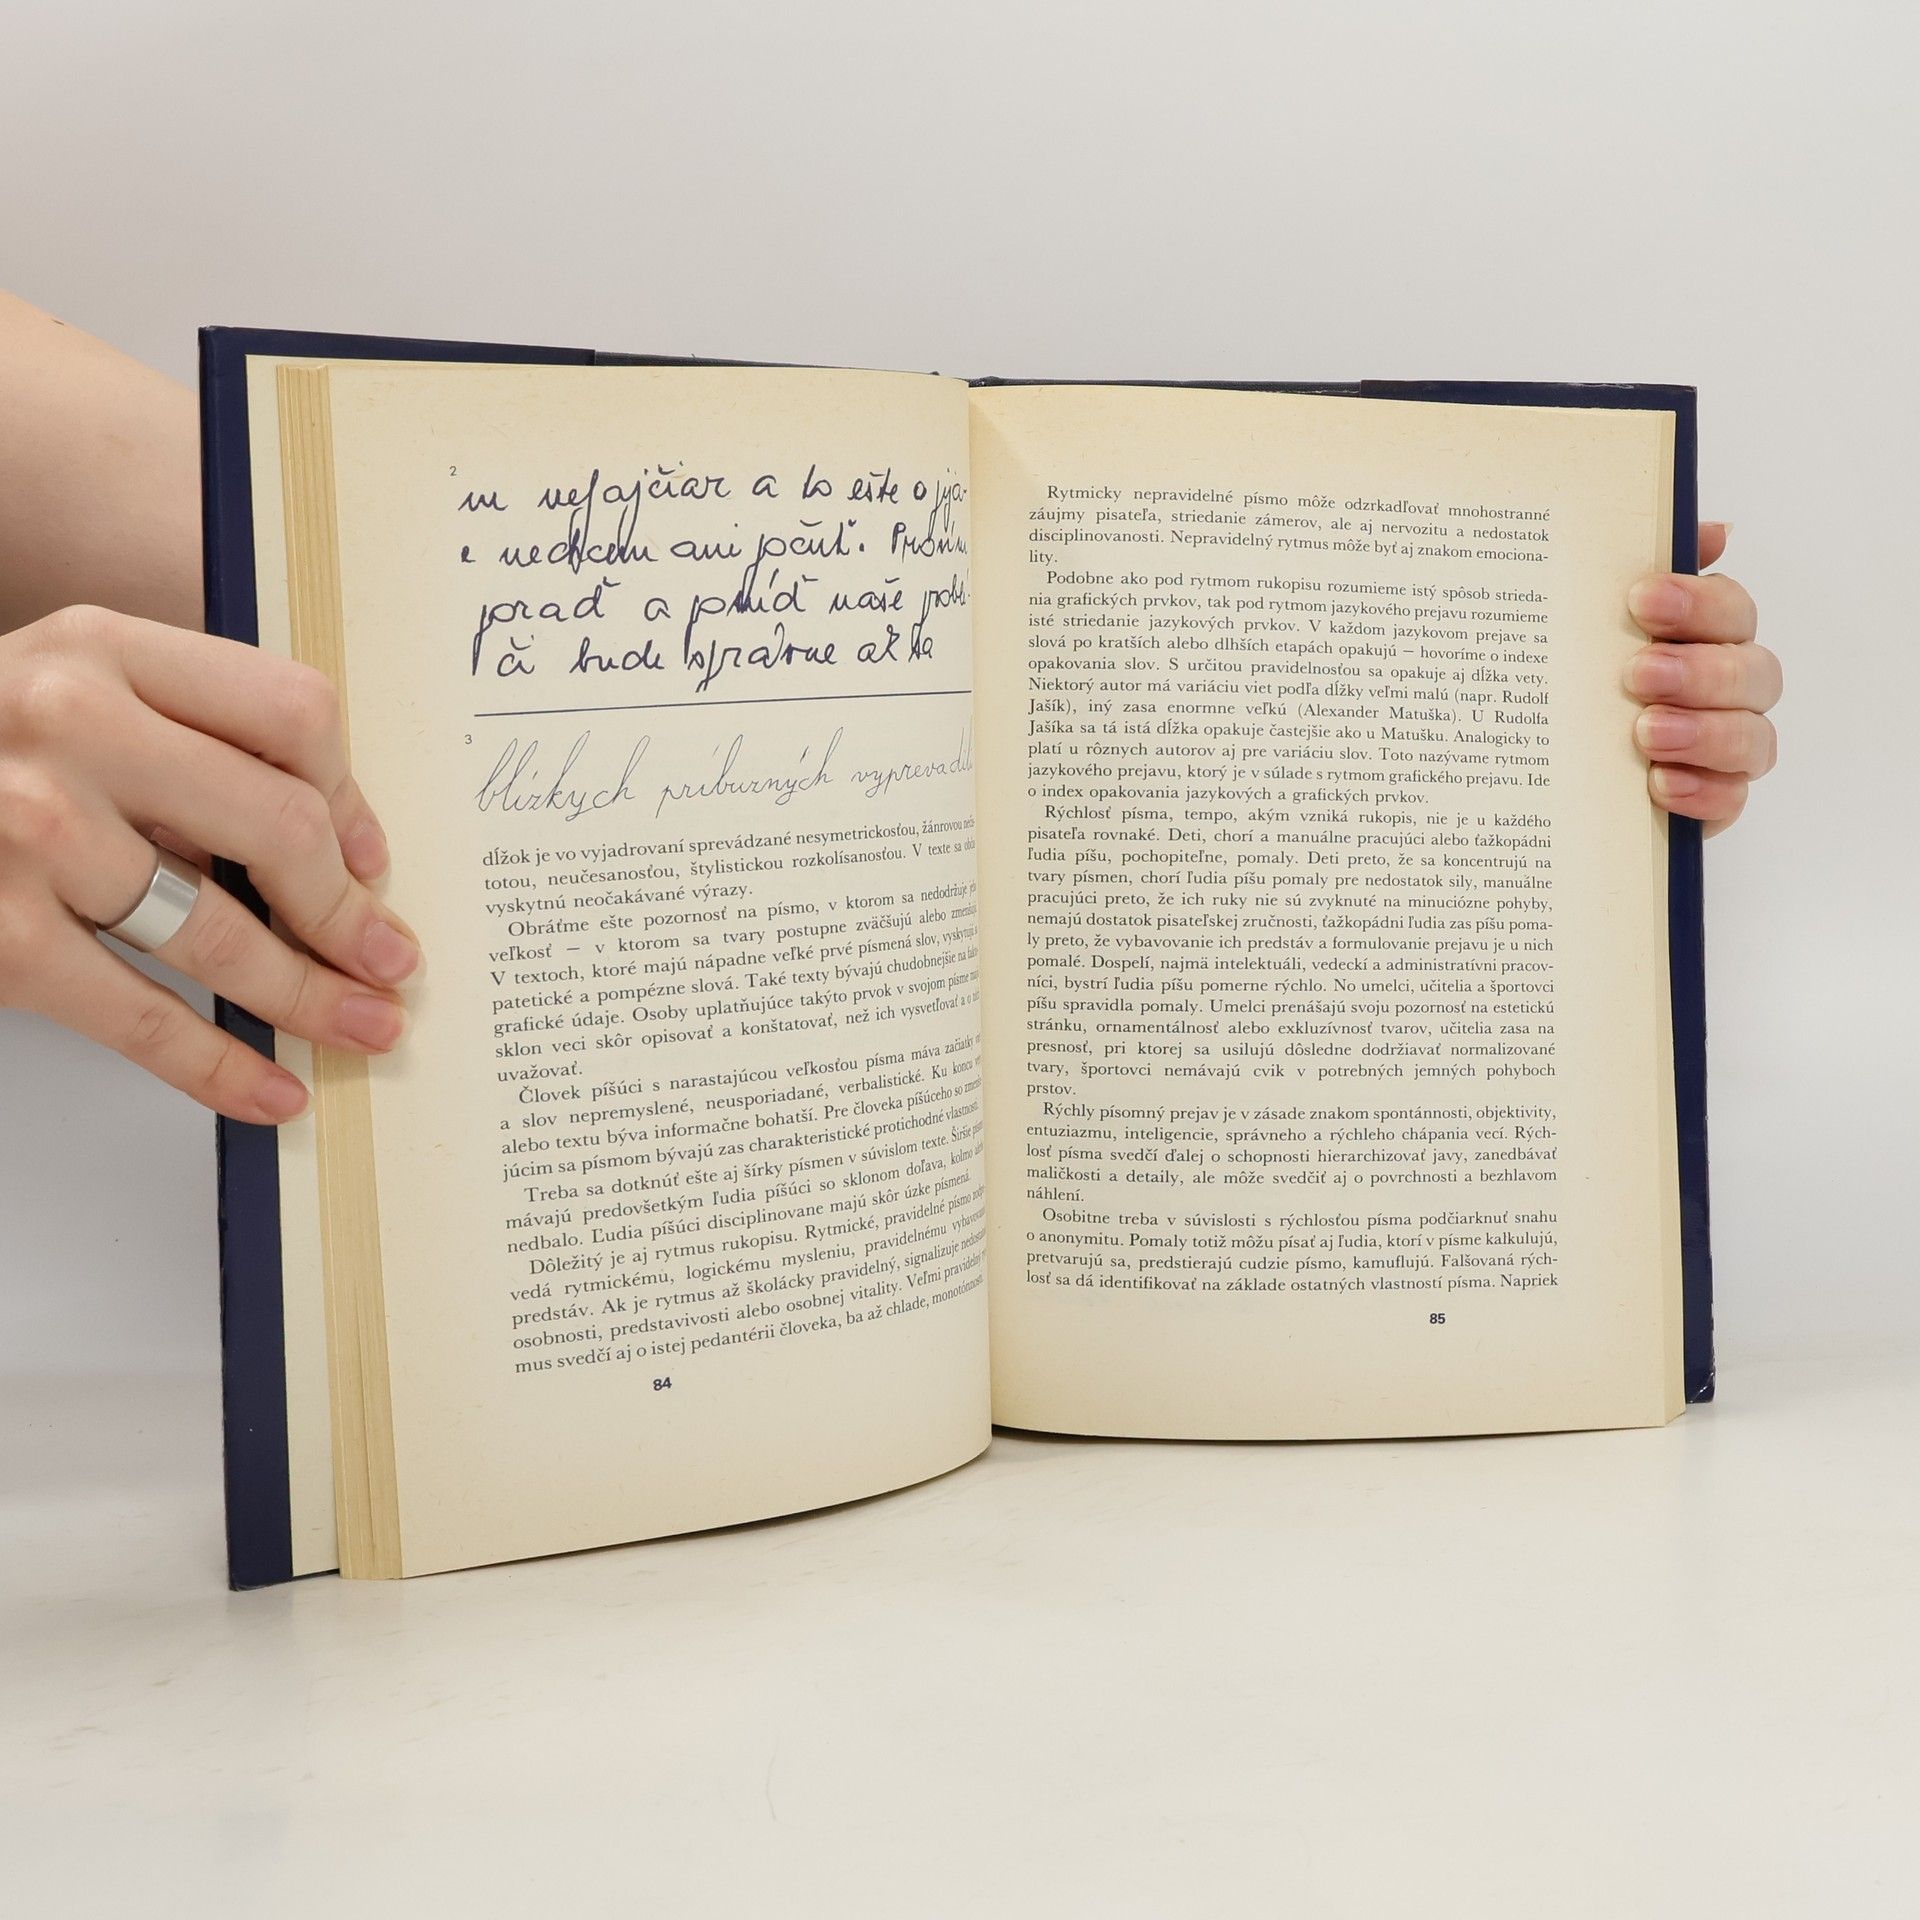 2
m nefajčiar a to ešte o
e nechcem ani počuť. Prosím
poraď a príď naše
či bude správne ak sa
3
blízkych príbuzných vyprevadili
dĺžok je vo vyjadrovaní sprevádzané nesymetrickosťou, žánrovou
totou, neučesanosťou, štylistickou rozkolísanosťou. V texte sa
vyskytnú neočakávané výrazy.
Obráťme ešte pozornosť na písmo, v ktorom sa nedodržuje
veľkosť – v ktorom sa tvary postupne zväčšujú alebo
V textoch, ktoré majú nápadne veľké prvé písmená slov, vyskytujú
patetické a pompézne slová. Také texty bývajú chudobnejšie na
grafické údaje. Osoby uplatňujúce takýto prvok v svojom písme
sklon veci skôr opisovať a konštatovať, než ich vysvetľovať a o
uvažovať.
Človek píšúci s narastajúcou veľkosťou písma máva začiatky
a slov nepremyslené, neusporiadané, verbalistické. Ku koncu
alebo textu býva informačne bohatší. Pre človeka píšúceho so
júcim sa písmom bývajú zas charakteristické protichodné vlastnosti.
Treba sa dotknúť ešte aj šírky písmen v súvislom texte. Širšie
mávajú predovšetkým ľudia píšúci so sklonom doľava, kolmo
nedbalo. Ľudia píšúci disciplinovane majú skôr úzke písmená.
Dôležitý je aj rytmus rukopisu. Rytmické, pravidelné písmo
vedá rytmickému, logickému mysleniu, pravidelnému
predstáv. Ak je rytmus až školácky pravidelný, signalizuje
osobnosti, predstavivosti alebo osobnej vitality. Veľmi pravidelný
mus svedčí aj o istej pedantérii človeka, ba až chlade, monotónnosti.
84
Rytmicky nepravidelné písmo môže odzrkadľovať mnohostranné
záujmy pisateľa, striedanie zámerov, ale aj nervozitu a nedostatok
disciplinovanosti. Nepravidelný rytmus môže byť aj znakom emociona-
lity.
Podobne ako pod rytmom rukopisu rozumieme istý spôsob strieda-
nia grafických prvkov, tak pod rytmom jazykového prejavu rozumieme
isté striedanie jazykových prvkov. V každom jazykovom prejave sa
slová po kratších alebo dlhších etapách opakujú – hovoríme o indexe
opakovania slov. S určitou pravidelnosťou sa opakuje aj dĺžka vety.
Niektorý autor má variáciu viet podľa dĺžky veľmi malú (napr. Rudolf
Jašík), iný zasa enormne veľkú (Alexander Matuška). U Rudolfa
Jašíka sa tá istá dĺžka opakuje častejšie ako u Matušku. Analogicky to
platí u rôznych autorov aj pre variáciu slov. Toto nazývame rytmom
jazykového prejavu, ktorý je v súlade s rytmom grafického prejavu. Ide
o index opakovania jazykových a grafických prvkov.
Rýchlosť písma, tempo, akým vzniká rukopis, nie je u každého
pisateľa rovnaké. Deti, chorí a manuálne pracujúci alebo ťažkopádni
ľudia píšu, pochopiteľne, pomaly. Deti preto, že sa koncentrujú na
tvary písmen, chorí ľudia píšu pomaly pre nedostatok sily, manuálne
pracujúci preto, že ich ruky nie sú zvyknuté na minuciózne pohyby,
nemajú dostatok pisateľskej zručnosti, ťažkopádni ľudia zas píšu poma-
ly preto, že vybavovanie ich predstáv a formulovanie prejavu je u nich
pomalé. Dospelí, najmä intelektuáli, vedeckí a administratívni pracov-
níci, bystrí ľudia píšu pomerne rýchlo. No umelci, učitelia a športovci
píšu spravidla pomaly. Umelci prenášajú svoju pozornosť na estetickú
stránku, ornamentálnosť alebo exkluzívnosť tvarov, učitelia zasa na
presnosť, pri ktorej sa usilujú dôsledne dodržiavať normalizované
tvary, športovci nemávajú cvik v potrebných jemných pohyboch
prstov.
Rýchly písomný prejav je v zásade znakom spontánnosti, objektivity,
entuziazmu, inteligencie, správneho a rýchleho chápania vecí. Rých-
losť písma svedčí ďalej o schopnosti hierarchizovať javy, zanedbávať
maličkosti a detaily, ale môže svedčiť aj o povrchnosti a bezhlavom
náhlení.
Osobitne treba v súvislosti s rýchlosťou písma podčiarknuť snahu
o anonymitu. Pomaly totiž môžu písať aj ľudia, ktorí v písme kalkulujú,
pretvarujú sa, predstierajú cudzie písmo, kamuflujú. Falšovaná rých-
losť sa dá identifikovať na základe ostatných vlastností písma. Napriek
85